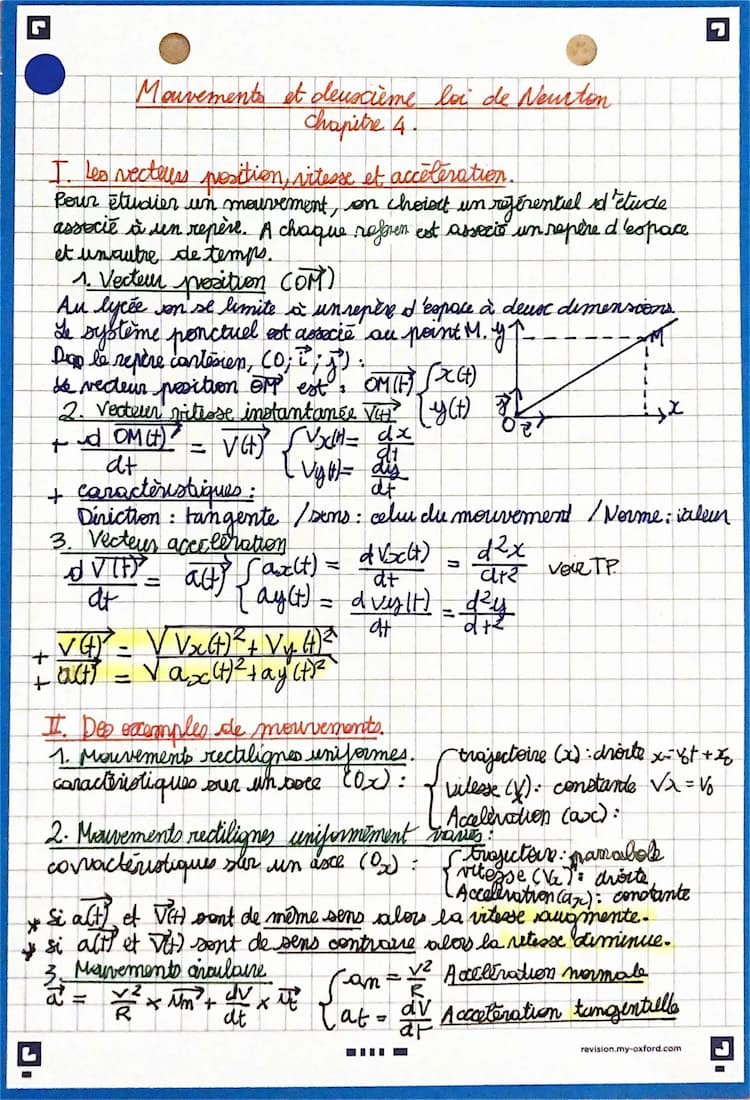 Mouvements et deuxième loi de Newton
Chapitre 4.
I. Les vecteurs position, vitesse et accélération.
Pour étudier un mouvement, on choisit un référentiel d'étude
associé à un repère. A chaque est associé un repère d'espace
et un autre de temps.
1. Vecteur position (OM⃗)
Au lycée on se limite à un repère d'espace à deux dimensions
Le système ponctuel est associé au point M.
y
M
Dans le repère cartésien, (O; i⃗; j⃗) :
Le vecteur position OM⃗ est : OM⃗(t) { x(t)
y(t)
j⃗
O i⃗
x
2. Vecteur vitesse instantanée V⃗(t)
+ d OM⃗(t) / dt = V⃗(t) { Vx(t) = dx/dt
Vy(t) = dy/dt
+ caractéristiques :
Diriction : tangente / sens : celui du mouvement / Norme : valeur
3. Vecteur accélération
d V⃗(t) / dt = a⃗(t) { ax(t) = d Vx(t) / dt = d²x / dt² voir TP
ay(t) = d Vy(t) / dt = d²y / dt²
+ V⃗(t) = √(Vx(t)² + Vy(t)²)
+ a⃗(t) = √(ax(t)² + ay(t)²)
II. Des exemples de mouvements.
1. Mouvements rectilignes uniformes.
caractéristiques sur un axe (Ox) :
{ trajectoire (x) : droite x = v₀t + x₀
vitesse (V) : constante Vx = V₀
Accélération (ax) :
2. Mouvements rectilignes uniformément variés :
caractéristiques sur un axe (Ox) :
{ trajectoire : parabole
vitesse (Vx) : droite
Accélération (ax) : constante
* Si a⃗(t) et V⃗(t) sont de même sens alors la vitesse augmente.
* si a⃗(t) et V⃗(t) sont de sens contraire alors la vitesse diminue.
3. Mouvements circulaire
a⃗ = V²/R × Un⃗ + dV/dt × Ut⃗
{ an = V²/R Accélération normale
at = dV/dt Accélération tangentielle
revision.my-oxford.com